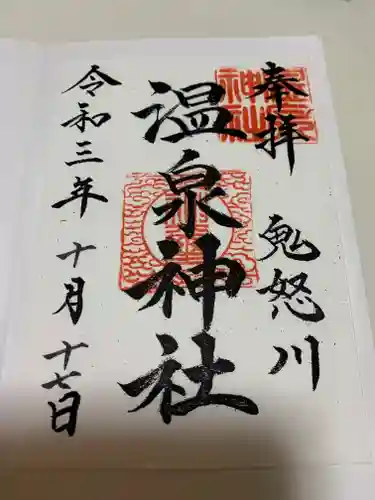 奉拝 鬼怒川
温泉神社
令和三年十月十七日